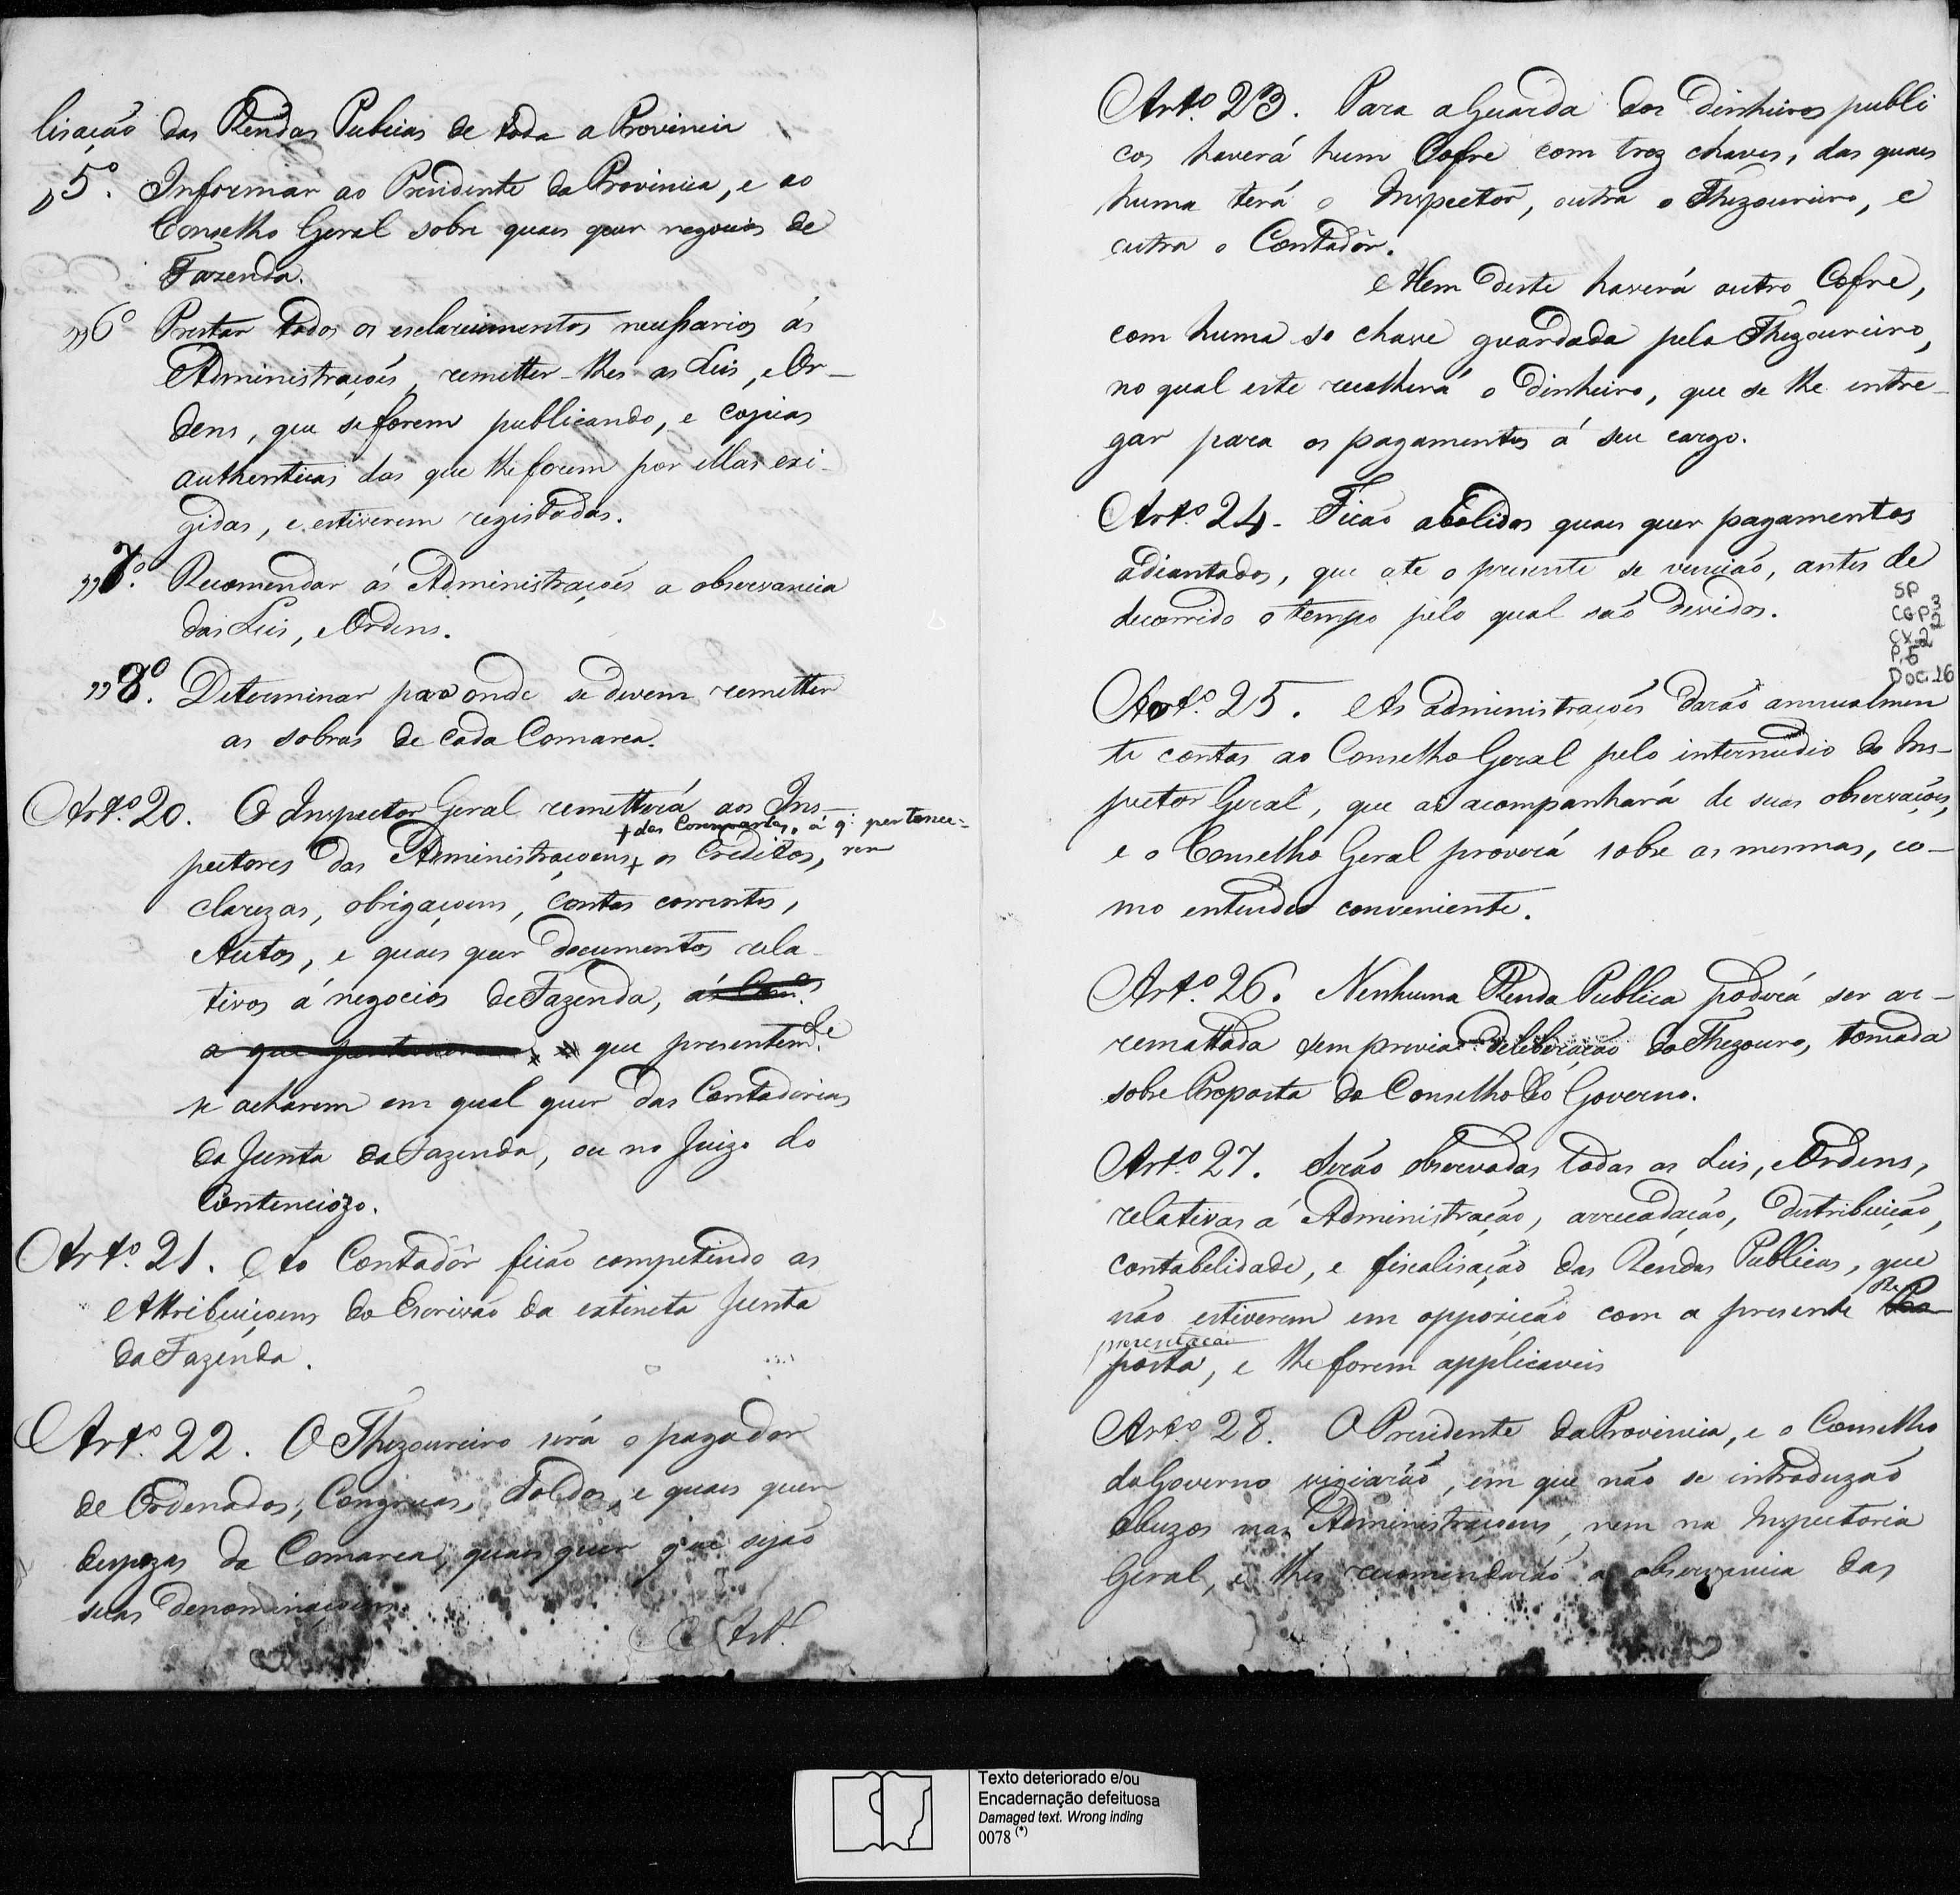 lisação das Rendas Publicas de toda a Provincia
,,5º. Informar ao Presidente da Provincia, e ao
Conselho Geral sobre quaes quer negocios de
Fazenda.
,,6º Prestar todos os esclarecimentos necessarios ás
Administraçoẽs, remetter-lhes as Leis, e Or-
dens, que se forem publicando, e copias
authenticas das que lhe forem por ellas exi-
gidas, e estiverem registadas.
,,7º. Recomendar ás Administraçoẽs a observancia
das Leis, e Ordens.
,,8º. Determinar para onde se devem remetter
as sobras de cada Comarca.
Artº. 20. O Inspector Geral remetterá aos Ins-
+ das Comarcas, á q. pertence-
pectores das Administraçoens + os Creditos, rem
clarezas, obrigaçoens, contas correntes,
Autos, e quaes quer documentos rela-
tivos á negocios de Fazenda, ás Com.cas
a que pertencerem que presentem.te
se acharem em qual quer das Contadorias
da Junta da Fazenda, ou no Juizo do
Contenciozo.
Artº. 21. Ao Contadôr ficão competindo as
Attribuiçoens do Escrivão da extincta Junta
da Fazenda.
Artº. 22. O Thezoureiro será o pagador
de Ordenados, Congruas, Soldos, e quaes quer
despezas da Comarca, quaes quer que sejão
suas denominaçoens.
Artº.
Artº. 23. Para a Guarda dos dinheiros publi
cos haverá hum Cofre com trez chaves, das quaes
huma terá o Inspector, outra o Thezoureiro, e
outra o Contadôr.
Alem deste haverá outro Cofre,
com huma so chave guardada pelo Thezoureiro,
no qual este recolherá o dinheiro, que se lhe entre-
gar para os pagamentos á seu cargo.
Artº. 24- Ficão abolidos quaes quer pagamentos
adiantados, que até o presente se vencião, antes de
decorrido o tempo pelo qual são devidos.
SP
CGP3
CX.2
P.5
DOC.16
Artº. 25. As administraçoẽs darão annualmen
te contas ao Conselho Geral pelo intermedio do Ins-
pector Geral, que as acompanhará de suas observaçoẽs,
e o Conselho Geral proverá sobre as mesmas, co-
mo entender conveniente.
Artº. 26. Nenhuma Renda Publica poderá ser ar-
rematada sem previa deliberação do Thezouro, tomada
sobre Proposta do Conselho do Governo.
Artº. 27. Serão observadas todas as Leis, e Ordens,
relativas á Administração, arrecadação, distribuição,
contabelidade, e fiscalisação das Rendas Publicas, que
não estiverem em opposição com a presente Re Pro
presentação
posta, e lhe forem applicaveis
Artº. 28. O Presidente da Provincia, e o Conselho
do Governo vigiarão, em que não se introduzão
abuzos nas Administraçoens, nem na Inspectoria
Geral, e lhes recomendarão a observancia das
Texto deteriorado e/ou
Encadernação defeituosa
Damaged text. Wrong inding
0078 (*)